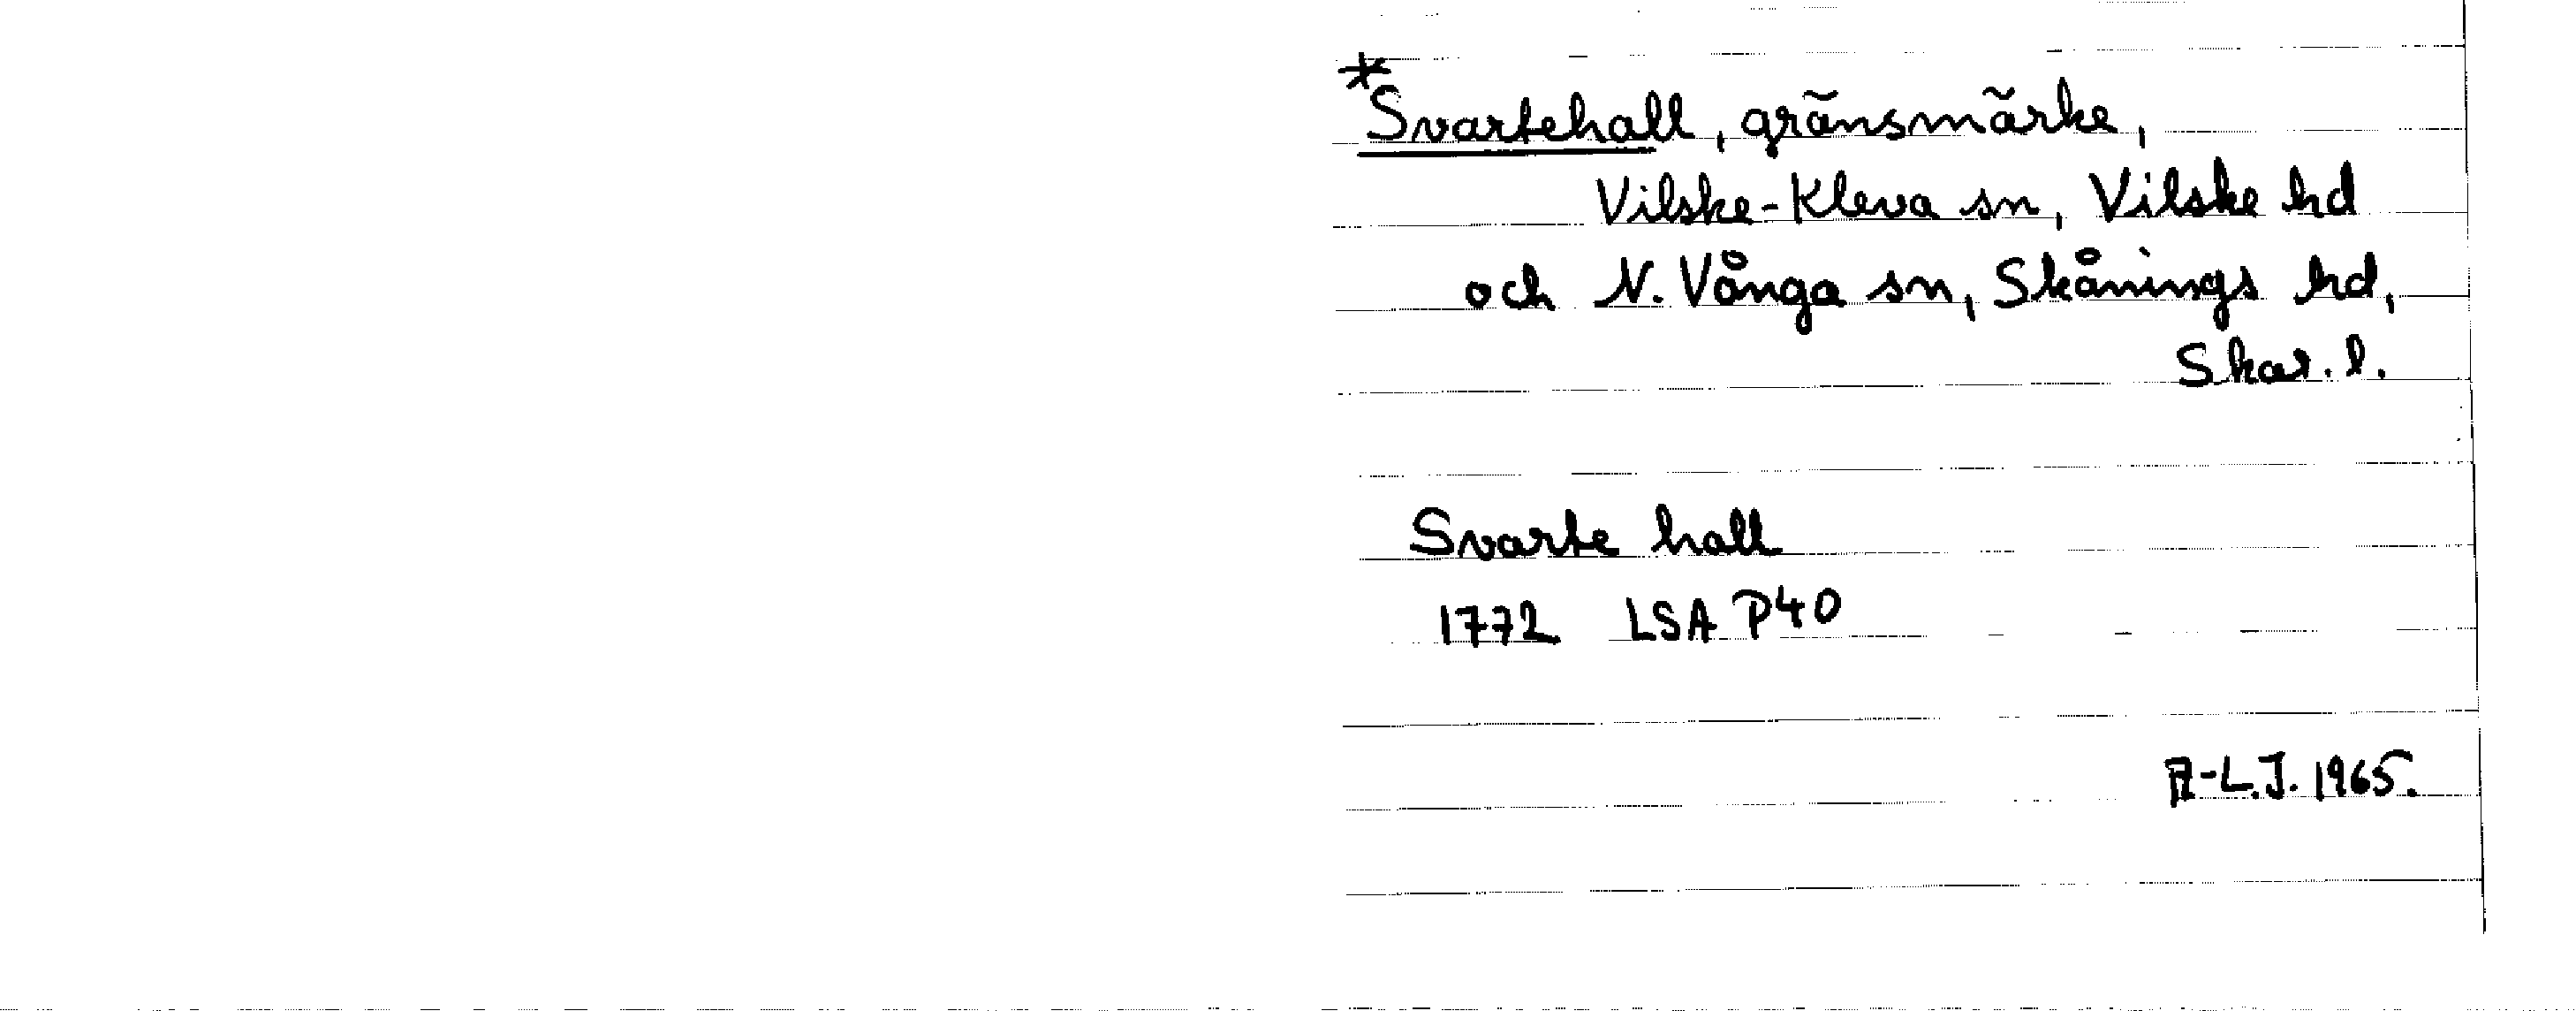 *Svartehall, gränsmärke,
Vilske-Kleva sn, Vilske hd
och N. Vånga sn, Skånings hd,
Skar. l.
Svarte hall
1772 LSA P40
A-L.J. 1965.